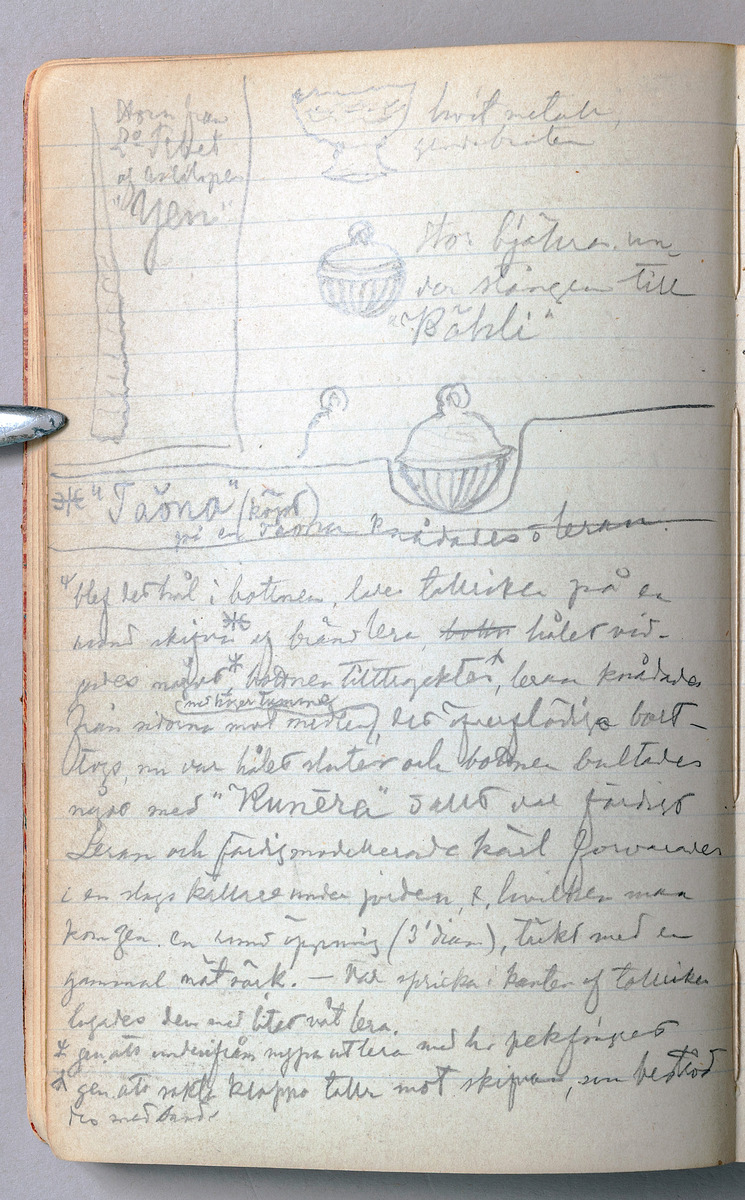 Horn från
Tibet
af antiloper
"Yen"
hvit metall,
genombruten
Stor bjällra, un-
der stången till
"Băhli"
"Taŏna" (köpt)
på en taŏna knådades leran.
blef det hål i bottnen, lades tallriken på en
rund skifva af bränd lera, botten hålet vid-
gades något bottnen tillbyektes, leran knådades
med höger tumme
från sidorna mot midten, det öfverflödiga bort-
togs, nu var hålet slutet och bottnen bultades
något med "Kunēra" så att var färdigt
Leran och färdigmodellerade kärl förvarades
i en slags källare under jorden, hvilken man
kom gen. en rund öppning (3' diam), täckt med en
gammal nätvärk. — När spricka i kanten af tallriken
lagades den med litet våt lera.
gen. att underifrån nypa ut lera med hö pekfingret
gen. att sakta klappa tallr mot skifvan, som beströd
des med sand